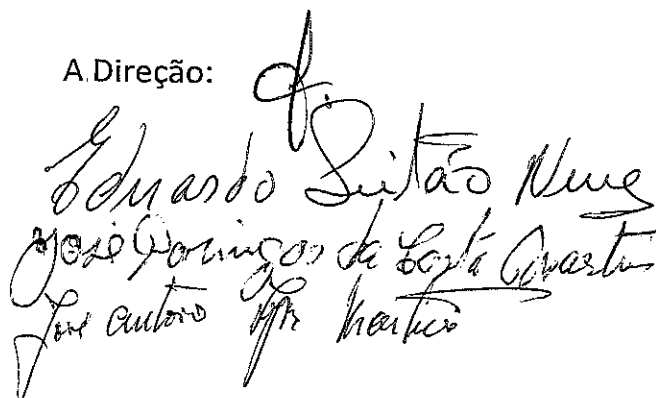 A Direção:
Eduardo Leitão Neves
José Domingos da Costa
José António Martins